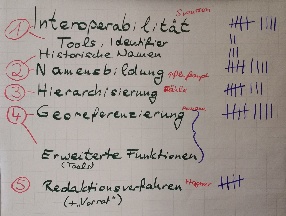 ① Interoperabilität
Tools, Identifier
Historische Namen
② Namensbildung
③ Hierarchisierung
④ Georeferenzierung
Erweiterte Funktionen
(Tools)
⑤ Redaktionsverfahren
(+„Vorrat“)